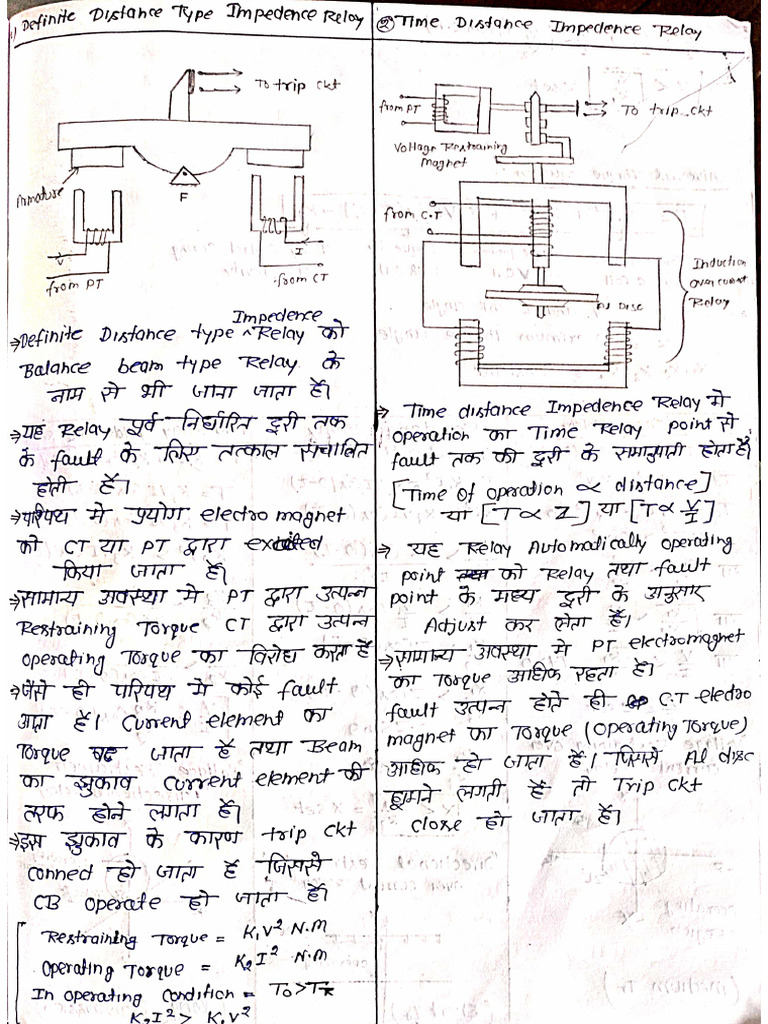 1) Definite Distance Type Impedence Relay
To trip ckt
Armature
F
V
I
from PT
from CT
Impedence
→Definite Distance type ^ Relay को
Balance beam type Relay के
नाम से भी जाना जाता हैं।
→यह Relay पूर्व निर्धारित दूरी तक
के fault के लिए तत्काल संचालित
होती हैं।
→परिपथ मे प्रयोग electro magnet
को CT या PT द्वारा excited
किया जाता हैं।
→सामान्य अवस्था मे PT द्वारा उत्पन्न
Restraining Torque CT द्वारा उत्पन्न
operating Torque का विरोध करता हैं
→जैसे ही परिपथ मे कोई fault
आता हैं। Current element का
Torque बढ जाता हैं तथा Beam
का झुकाव current element की
तरफ होने लगता हैं।
→इस झुकाव के कारण trip ckt
connect हो जाता हैं जिससे
CB operate हो जाता हैं।
Restraining Torque = K₁V² N.M
Operating Torque = K₂I² N.M
In operating condition =
K₂I² > K₁V²
② Time Distance Impedence Relay
from PT
To trip ckt
Voltage Restraining
Magnet
from C.T
Al Disc
Induction
over current
Relay
→ Time distance Impedence Relay मे
operation का Time Relay point से
fault तक की दूरी के समानुपाती होता हैं।
[Time of operation ∝ distance]
या [T ∝ Z] या [T ∝ V/I]
→ यह Relay Automatically operating
point को Relay तथा fault
point के मध्य दूरी के अनुसार
Adjust कर लेता हैं।
→सामान्य अवस्था मे PT electromagnet
का Torque अधिक रहता हैं।
fault उत्पन्न होते ही C.T electro
magnet का Torque (operating Torque)
अधिक हो जाता हैं। जिससे Al disc
घूमने लगती हैं तो Trip ckt
close हो जाता हैं।